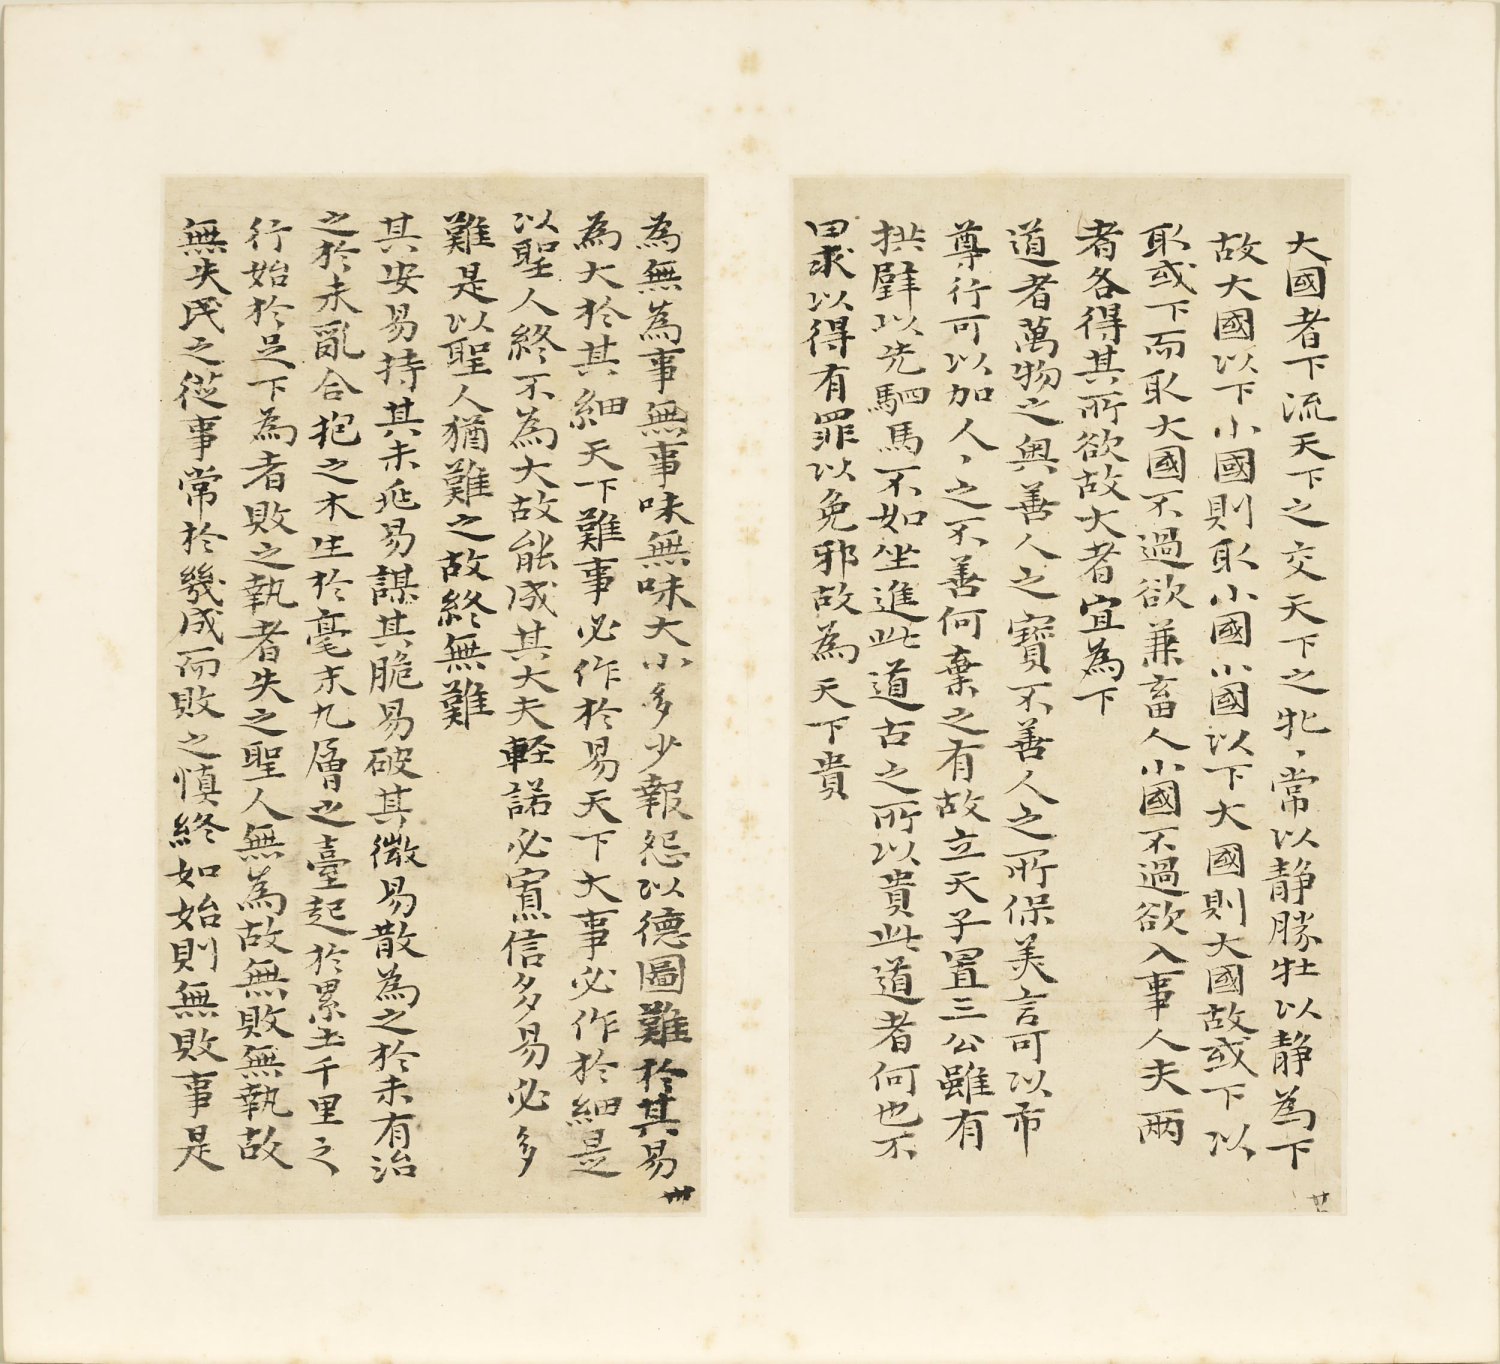 大國者下流天下之交天下之牝、常以静勝牡以静為下
故大國以下小國則取小國小國以下大國則大國故或下以
取或下而取大國不過欲兼畜人小國不過欲入事人夫兩
者各得其所欲故大者宜為下
道者萬物之奥善人之寳不善人之所保美言可以市
尊行可以加人、之不善何棄之有故立天子置三公雖有
拱璧以先駟馬不如坐進此道古之所以貴此道者何也不
曰求以得有罪以免邪故為天下貴
廿
為無為事無事味無味大小多少報怨以德圖難於其易
為大於其細天下難事必作於易天下大事必作於細是
以聖人終不為大故能成其大夫輕諾必寡信多易必多
難是以聖人猶難之故終無難
其安易持其未兆易謀其脆易破其微易散為之於未有治
之於未亂合抱之木生於毫末九層之臺起於累土千里之
行始於足下為者敗之執者失之聖人無為故無敗無執故
無失民之從事常於幾成而敗之慎終如始則無敗事是
卌